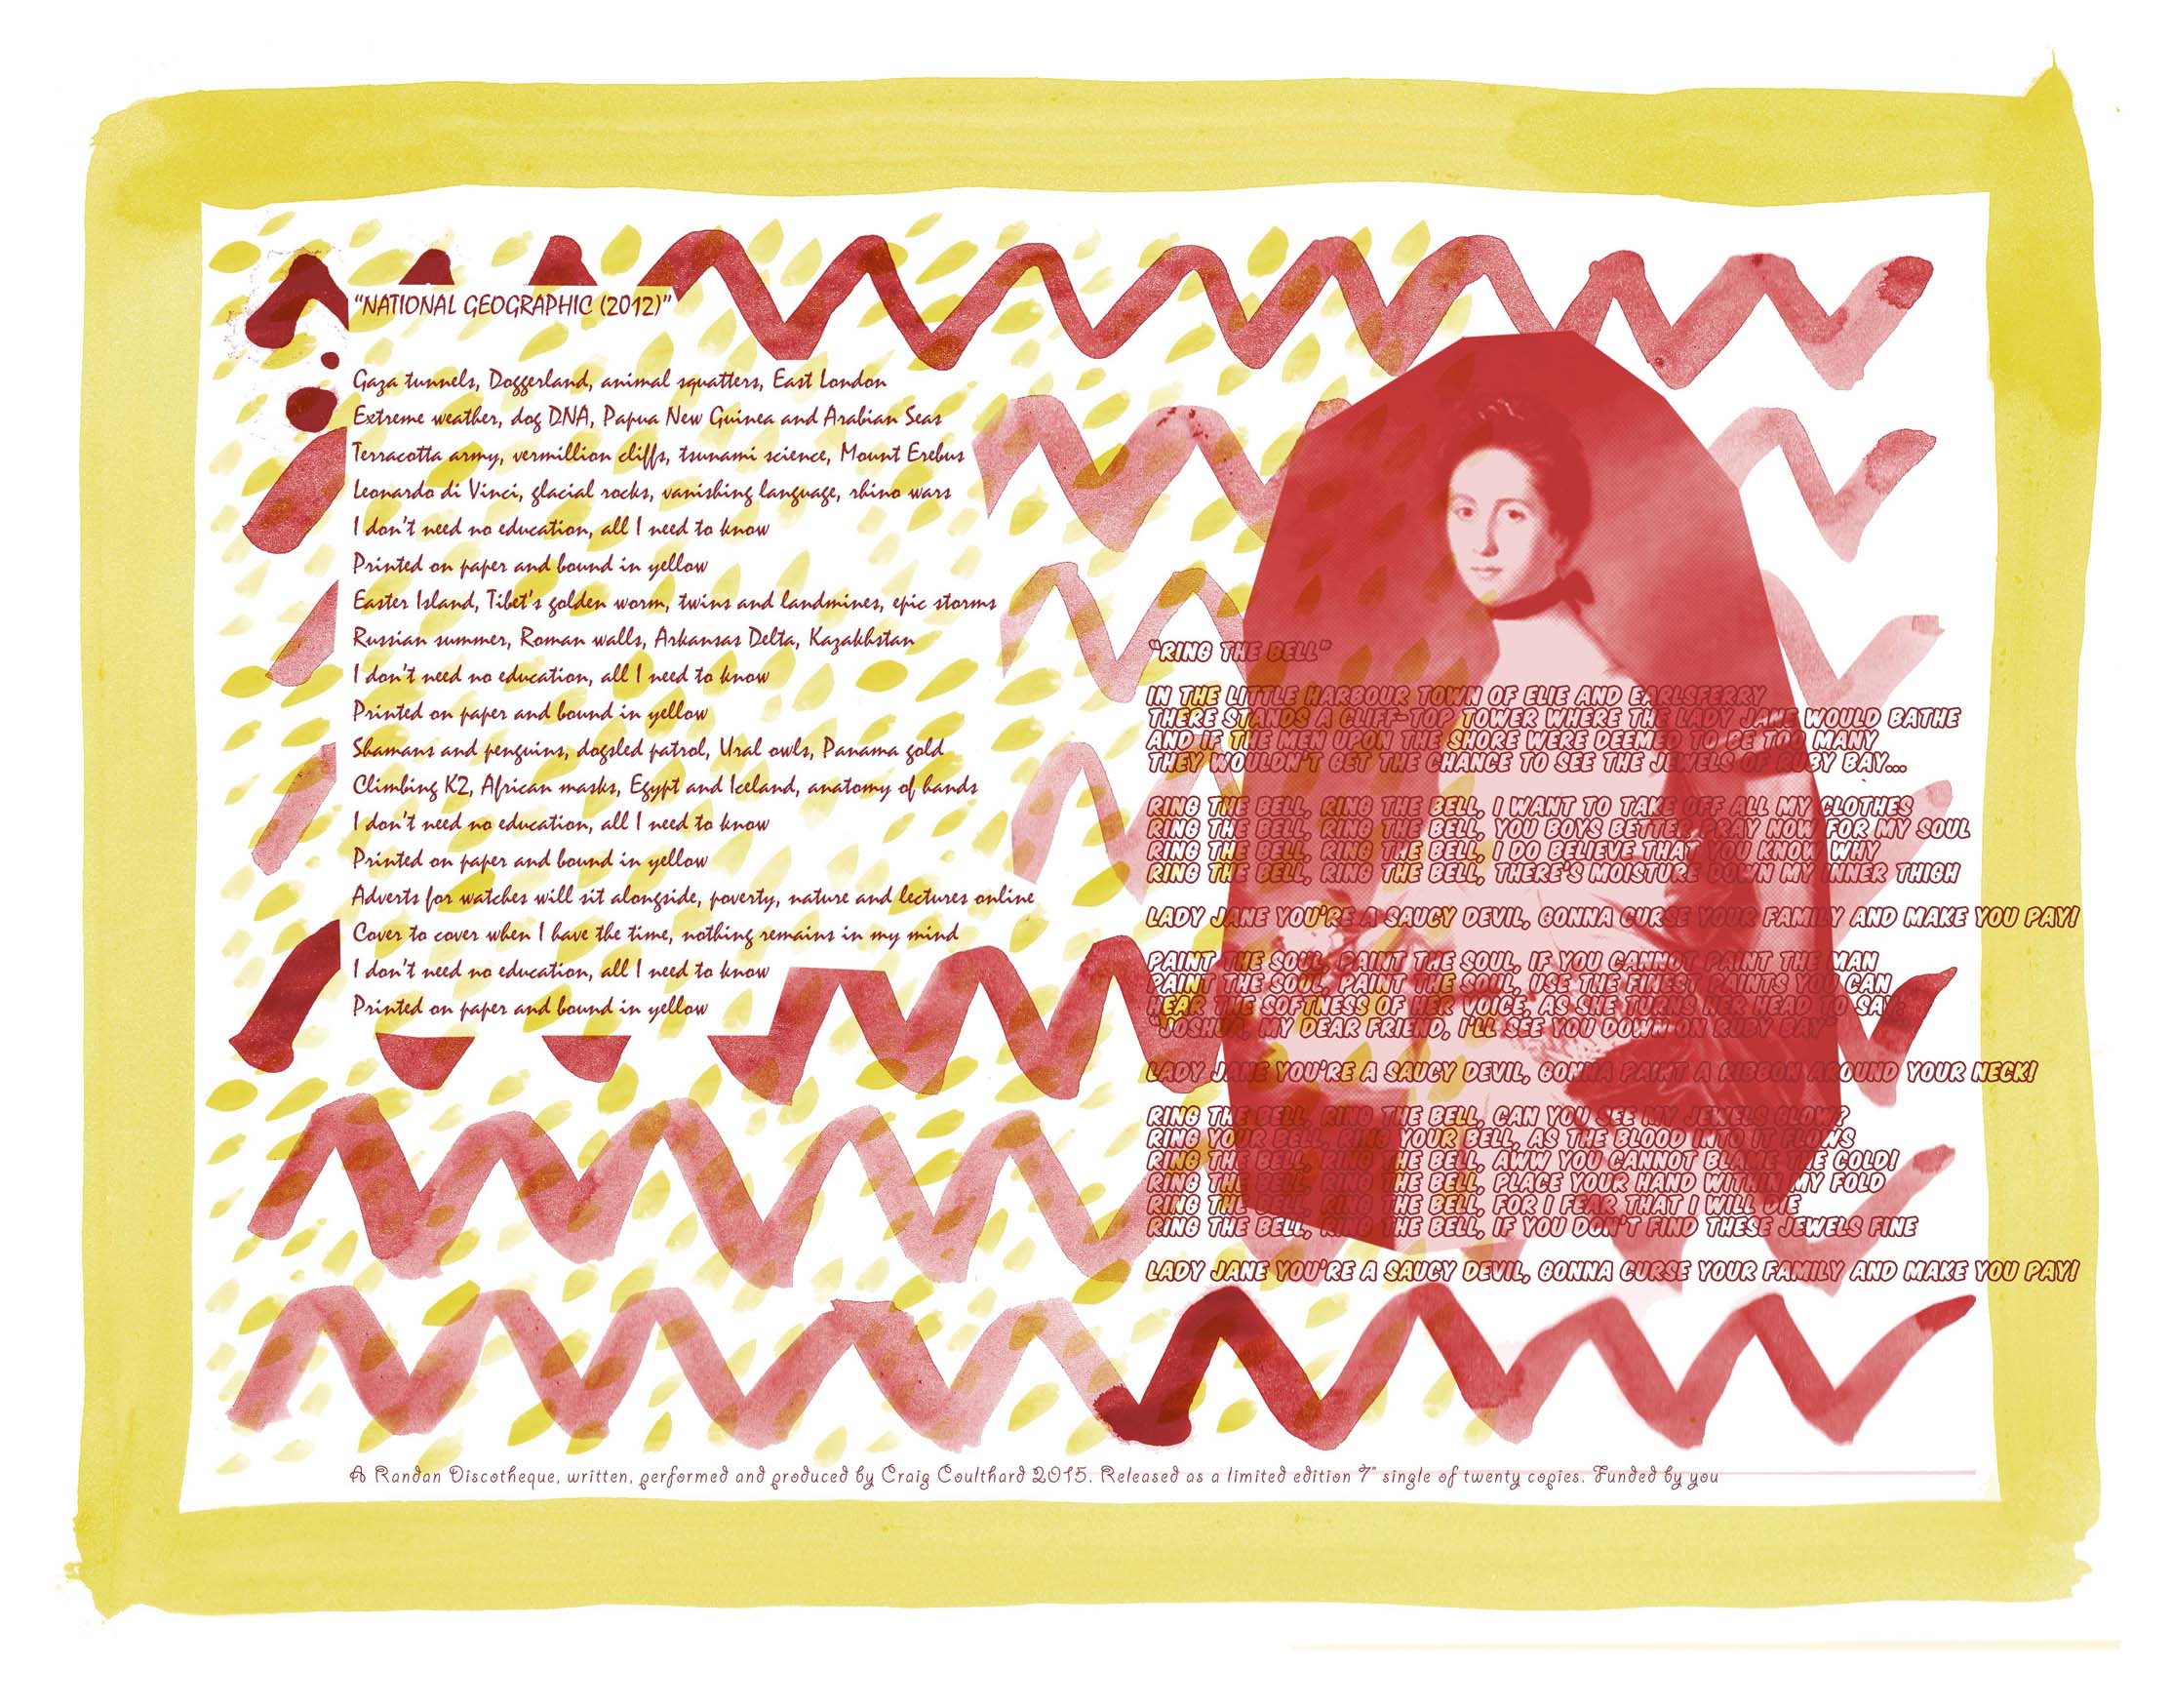 "NATIONAL GEOGRAPHIC (2012)"
Gaza tunnels, Doggerland, animal squatters, East London
Extreme weather, dog DNA, Papua New Guinea and Arabian Seas
Terracotta army, vermillion cliffs, tsunami science, Mount Erebus
Leonardo di Vinci, glacial rocks, vanishing language, rhino wars
I don't need no education, all I need to know
Printed on paper and bound in yellow
Easter Island, Tibet's golden worm, twins and landmines, epic storms
Russian summer, Roman walls, Arkansas Delta, Kazakhstan
I don't need no education, all I need to know
Printed on paper and bound in yellow
Shamans and penguins, dogsled patrol, Ural owls, Panama gold
Climbing K2, African masks, Egypt and Iceland, anatomy of hands
I don't need no education, all I need to know
Printed on paper and bound in yellow
Adverts for watches will sit alongside, poverty, nature and lectures online
Cover to cover when I have the time, nothing remains in my mind
I don't need no education, all I need to know
Printed on paper and bound in yellow
"RING THE BELL"
IN THE LITTLE HARBOUR TOWN OF ELIE AND EARLSFERRY
THERE STANDS A CLIFF-TOP TOWER WHERE THE LADY JANE WOULD BATHE
AND IF THE MEN UPON THE SHORE WERE DEEMED TO BE TOO MANY
THEY WOULDN'T GET THE CHANCE TO SEE THE JEWELS OF RUBY BAY...
RING THE BELL, RING THE BELL, I WANT TO TAKE OFF ALL MY CLOTHES
RING THE BELL, RING THE BELL, YOU BOYS BETTER PRAY NOW FOR MY SOUL
RING THE BELL, RING THE BELL, I DO BELIEVE THAT YOU KNOW WHY
RING THE BELL, RING THE BELL, THERE'S MOISTURE DOWN MY INNER THIGH
LADY JANE YOU'RE A SAUCY DEVIL, GONNA CURSE YOUR FAMILY AND MAKE YOU PAY!
PAINT THE SOUL, PAINT THE SOUL, IF YOU CANNOT PAINT THE MAN
PAINT THE SOUL, PAINT THE SOUL, USE THE FINEST PAINTS YOU CAN
HEAR THE SOFTNESS OF HER VOICE, AS SHE TURNS HER HEAD TO SAY
"JOSHUA, MY DEAR FRIEND, I'LL SEE YOU DOWN ON RUBY BAY"
LADY JANE YOU'RE A SAUCY DEVIL, GONNA PAINT A RIBBON AROUND YOUR NECK!
RING THE BELL, RING THE BELL, CAN YOU SEE MY JEWELS GLOW?
RING YOUR BELL, RING YOUR BELL, AS THE BLOOD INTO IT FLOWS
RING THE BELL, RING THE BELL, AWW YOU CANNOT BLAME THE COLD!
RING THE BELL, RING THE BELL, PLACE YOUR HAND WITHIN MY FOLD
RING THE BELL, RING THE BELL, FOR I FEAR THAT I WILL DIE
RING THE BELL, RING THE BELL, IF YOU DON'T FIND THESE JEWELS FINE
LADY JANE YOU'RE A SAUCY DEVIL, GONNA CURSE YOUR FAMILY AND MAKE YOU PAY!
A Randan Discotheque, written, performed and produced by Craig Coulthard 2015. Released as a limited edition 7" single of twenty copies. Funded by you